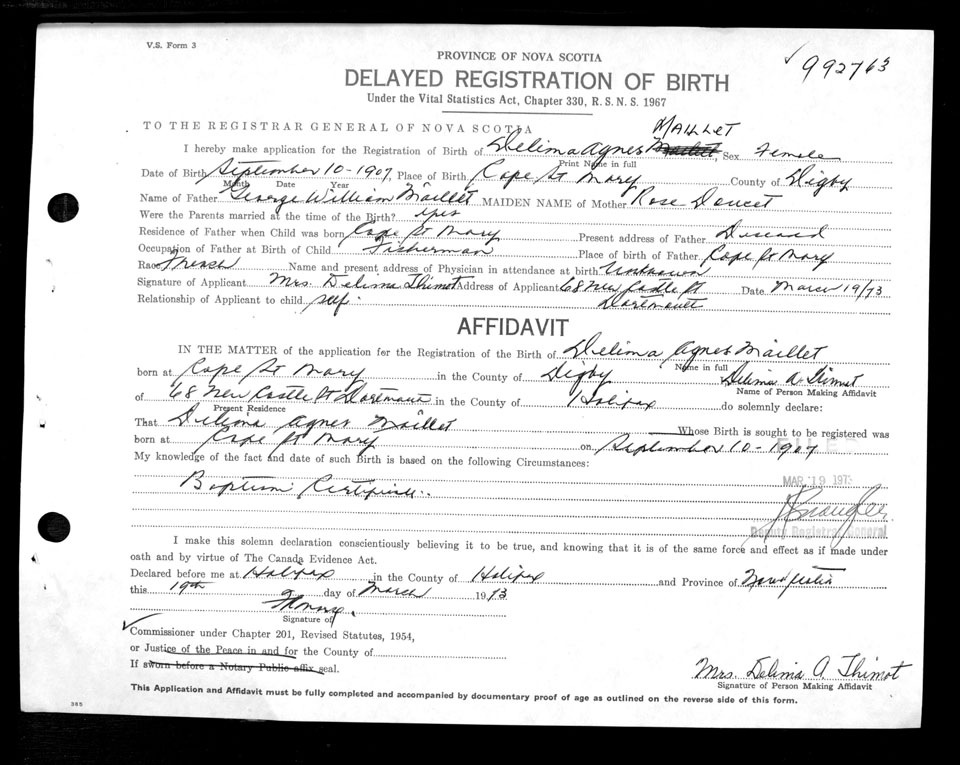 V.S. Form 3
✓992763
PROVINCE OF NOVA SCOTIA
DELAYED REGISTRATION OF BIRTH
Under the Vital Statistics Act, Chapter 330, R.S.N.S. 1967
TO THE REGISTRAR GENERAL OF NOVA SCOTIA
MAILLET
I hereby make application for the Registration of Birth of Delima Agnes Maillet, Sex Female
Print Name in full
Date of Birth September 10-1907, Place of Birth Cape St Mary County of Digby
Month Date Year
Name of Father George William Maillet MAIDEN NAME of Mother Rose Doucet
Were the Parents married at the time of the Birth? yes
Residence of Father when Child was born Cape St Mary Present address of Father Deseasd
Occupation of Father at Birth of Child Fisherman Place of birth of Father Cape St Mary
Race French Name and present address of Physician in attendance at birth Unknown
Signature of Applicant Mrs. Delima Thimot Address of Applicant 68 New Castle St Date March 19/73
Relationship of Applicant to child self. Dartmouth
AFFIDAVIT
IN THE MATTER of the application for the Registration of the Birth of Delima Agnes Maillet
Name in full
born at Cape St Mary in the County of Digby Delima A Thimot
Name of Person Making Affidavit
of 68 New Castle St Dartmouth in the County of Halifax do solemnly declare:
Present Residence
That Delima Agnes Maillet Whose Birth is sought to be registered was
born at Cape St Mary on September 10-1907
My knowledge of the fact and date of such Birth is based on the following Circumstances:
MAR 19 197
Baptism Certificate.
Deputy Registrar General
I make this solemn declaration conscientiously believing it to be true, and knowing that it is of the same force and effect as if made under
oath and by virtue of The Canada Evidence Act.
Declared before me at Halifax in the County of Halifax and Province of Nova Scotia
this 19th day of March 1973
Signature of
✓
Commissioner under Chapter 201, Revised Statutes, 1954,
or Justice of the Peace in and for the County of
If sworn before a Notary Public affix seal.
Mrs. Delima A. Thimot
Signature of Person Making Affidavit
This Application and Affidavit must be fully completed and accompanied by documentary proof of age as outlined on the reverse side of this form.
385